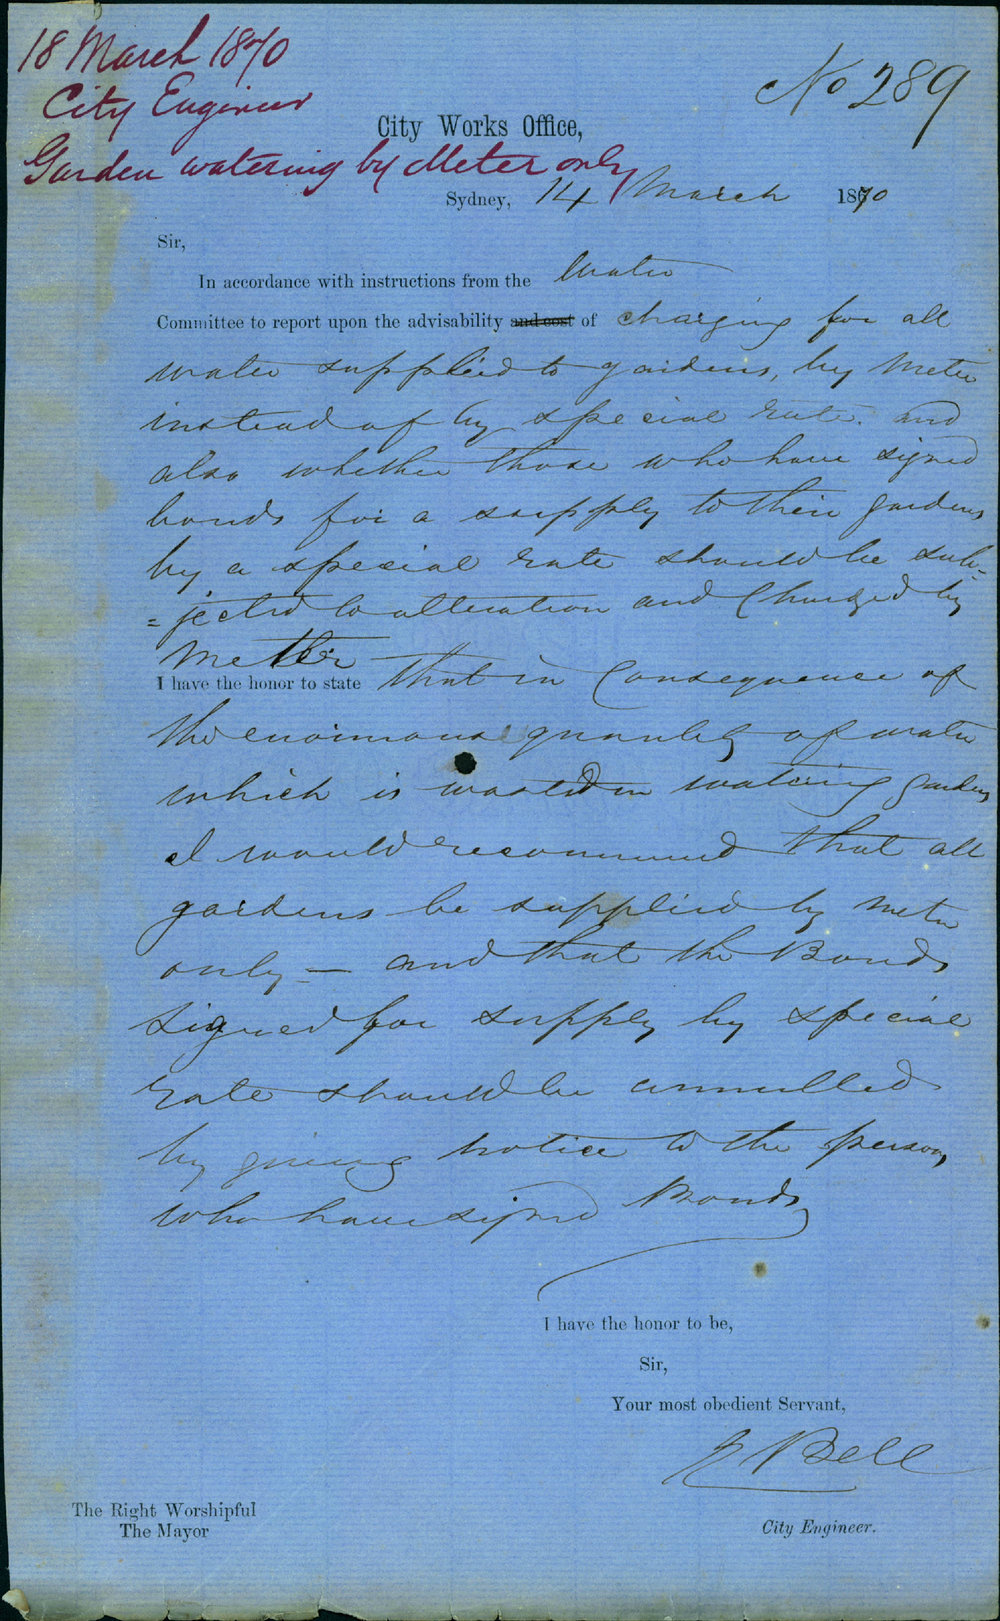 18 March 1870
City Engineer
Garden watering by Meter only
No 289
City Works Office,
Sydney, 14 March 1870
Sir,
In accordance with instructions from the Water
Committee to report upon the advisability and cost of charging for all
water supplied to gardens, by Meter
instead of by special rate. and
also whether those who have signed
bonds for a supply to their gardens
by a special rate should be sub-
=jected to alteration and Charged by
Meter
I have the honor to state that in Consequence of
the enormous quantity of water
which is wasted in watering gardens
I would recommend that all
gardens be supplied by meter
only — and that the Bonds
signed for supply by special
rate should be annulled
by giving notice to the persons
who have signed Bonds
I have the honor to be,
Sir,
Your most obedient Servant,
E Bell
City Engineer.
The Right Worshipful
The Mayor